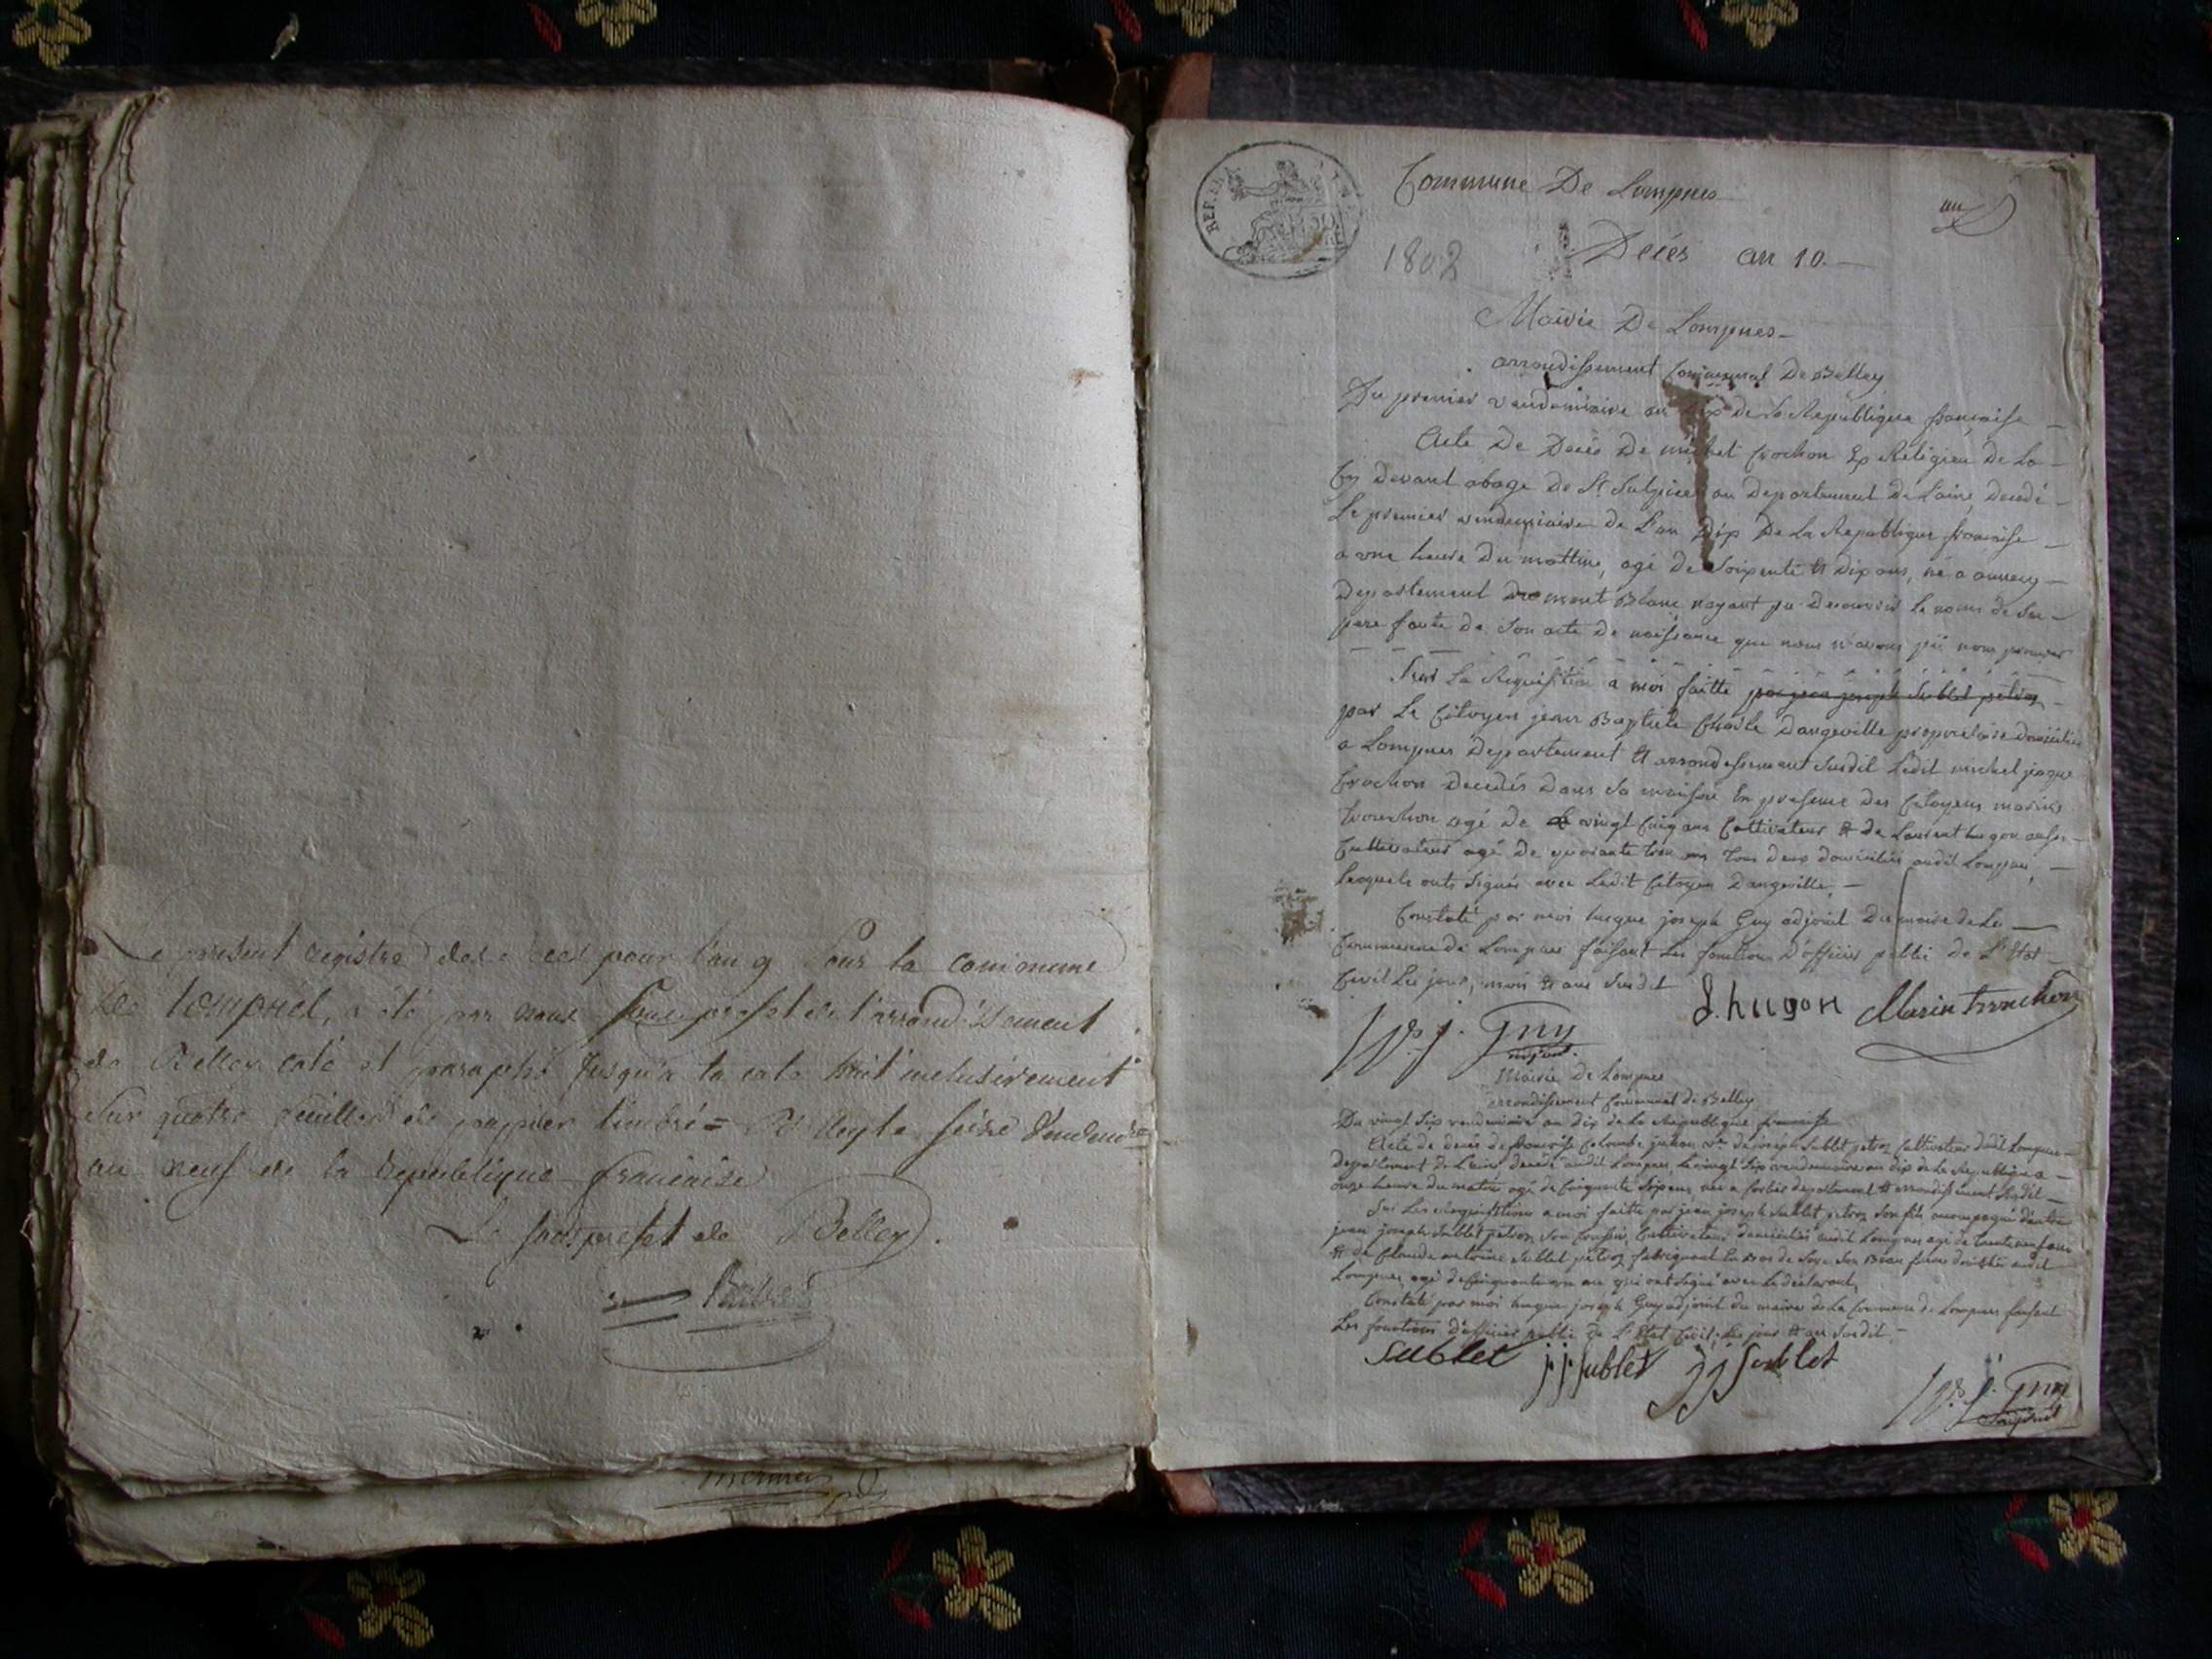 Le present registre des deces pour l'an 9 pour la commune
de Lompnes, a été par nous sous prefet de l'arrondissement
de Belley coté et paraphé jusqu'a la cote huit inclusivement
sur quatre feuilles de pappier timbré = Belley le seize vendemre
an neuf de la republique francaise
Le souspréfet de Belley.
REP. FRA
Commune De Lompnes
un
1802 Décés an 10.
Mairie De Lompnes
arrondissement Communal De Belley
Du premier vendemiaire an dix de la Republique francaise
Acte De Decés De michel Crochon Ex Religieu de La
Cy devant abage de St Sulpice au Departement de L'ain, decedé
Le premier vendemiaire de L'an Dix De La Republique francaise
a une heure du mattine, agé De Soixente et dix ans, né a annecy
Departement du mont Blanc nayant pu decouvrir le nom de son
pere faute de Son acte de naissance que nous n'avons pû nous procurer
Sur La Requisition a moi faitte par jean joseph Sublet petion
par Le Citoyen jean Baptiste Charle Dangeville propriétaire domicilié
a Lompnes Departement et arrondissement Susdit Ledit michel jaque
Crochon Decedés Dans Sa maison En presence des Citoyens marin
tronchon agé de vingt Cinq ans Cultivateur et de Laurent hugon aussi
Cultivateur agé De quarante trois ans tous deux domiciliés audit Lompnes,
lesquels onts Signés avec Ledit Citoyen Dangeville,
Constaté par moi hugue joseph Guy adjoint Du maire de La
Commune de Lompnes faisant Les fonctions D'officier public de L'Etat
Civil Les jour, mois et ans Susdit
L. hugon Marin tronchon
h. j. Guy
adjoint.
Mairie de Lompnes
arrondissement Communal de Belley
Du vingt Six vendemiaire an dix de La Republique francaise
Acte de decés de francoise Colombe ve de joseph Sublet petion Cultivateur dudit Lompnes
departement de L'ain, decedé audit Lompnes, Le vingt Six vendemiaire an dix de La Republique a
onze heure du matin agé de Cinquante Six ans, née a departement et arrondissement Susdit
Sur Les Requisitions a moi faitte par jean joseph Sublet petion Son fils accompagné d'autre
jean joseph Sublet petion Son Cousin, Cultivateur domiciliés audit Lompnes agé de trente neuf ans
et de Claude antoine Sublet petion fabriquant En Bas de Soye Son Beau frere domicilié audit
Lompnes, agé de Cinquante un ans qui ont Signé avec Le declarant,
Constaté par moi hugue joseph Guy adjoint du maire de La Commune de Lompnes faisant
Les fonctions d'officier public De L'Etat Civil, Les jour et an Susdit,
Sublet j.j. Sublet jj Sublet
h. j. Guy
adjoint